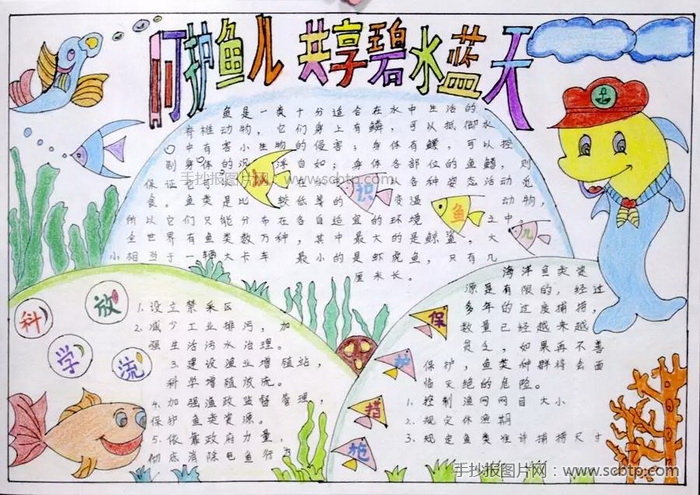 呵护鱼儿 共享碧水蓝天
鱼是一类十分适合在水中生活的
脊椎动物，它们身上有鳞，可以抵御水
中有害小生物的侵害；身体有鳔，可以控
制身体的沉浮自如；身体各部位的鱼鳍，则
保证它
从各种姿态活动
食。鱼类是比较低等的变温动物，
所以它们只能分布在各自适宜的环境之中
全世界有鱼类数万种，其中最大的是鲸鲨，大
小相当于一辆大卡车 最小的是虾虎鱼，只有几
厘米长。
认识鱼儿
手抄报图片网：www.scbtp.com
科学放流
1.设立禁采区
2.减少工业排污，加
强生活污水治理。
3.建设渔业增殖站，
科学增殖放流。
4.加强渔政监督管理，
保护鱼类资源。
5.依靠政府力量，
彻底消除电鱼行
保护措施
海洋鱼类资
源是有限的，经过
多年的过度捕捞，
数量已经越来越
贫乏，如果再不善
保护，鱼类种群将会面
临灭绝的危险。
1.控制渔网网目大小
2.规定休渔期
3.规定鱼类准许捕捞尺寸
手抄报图片网：www.scbtp.com